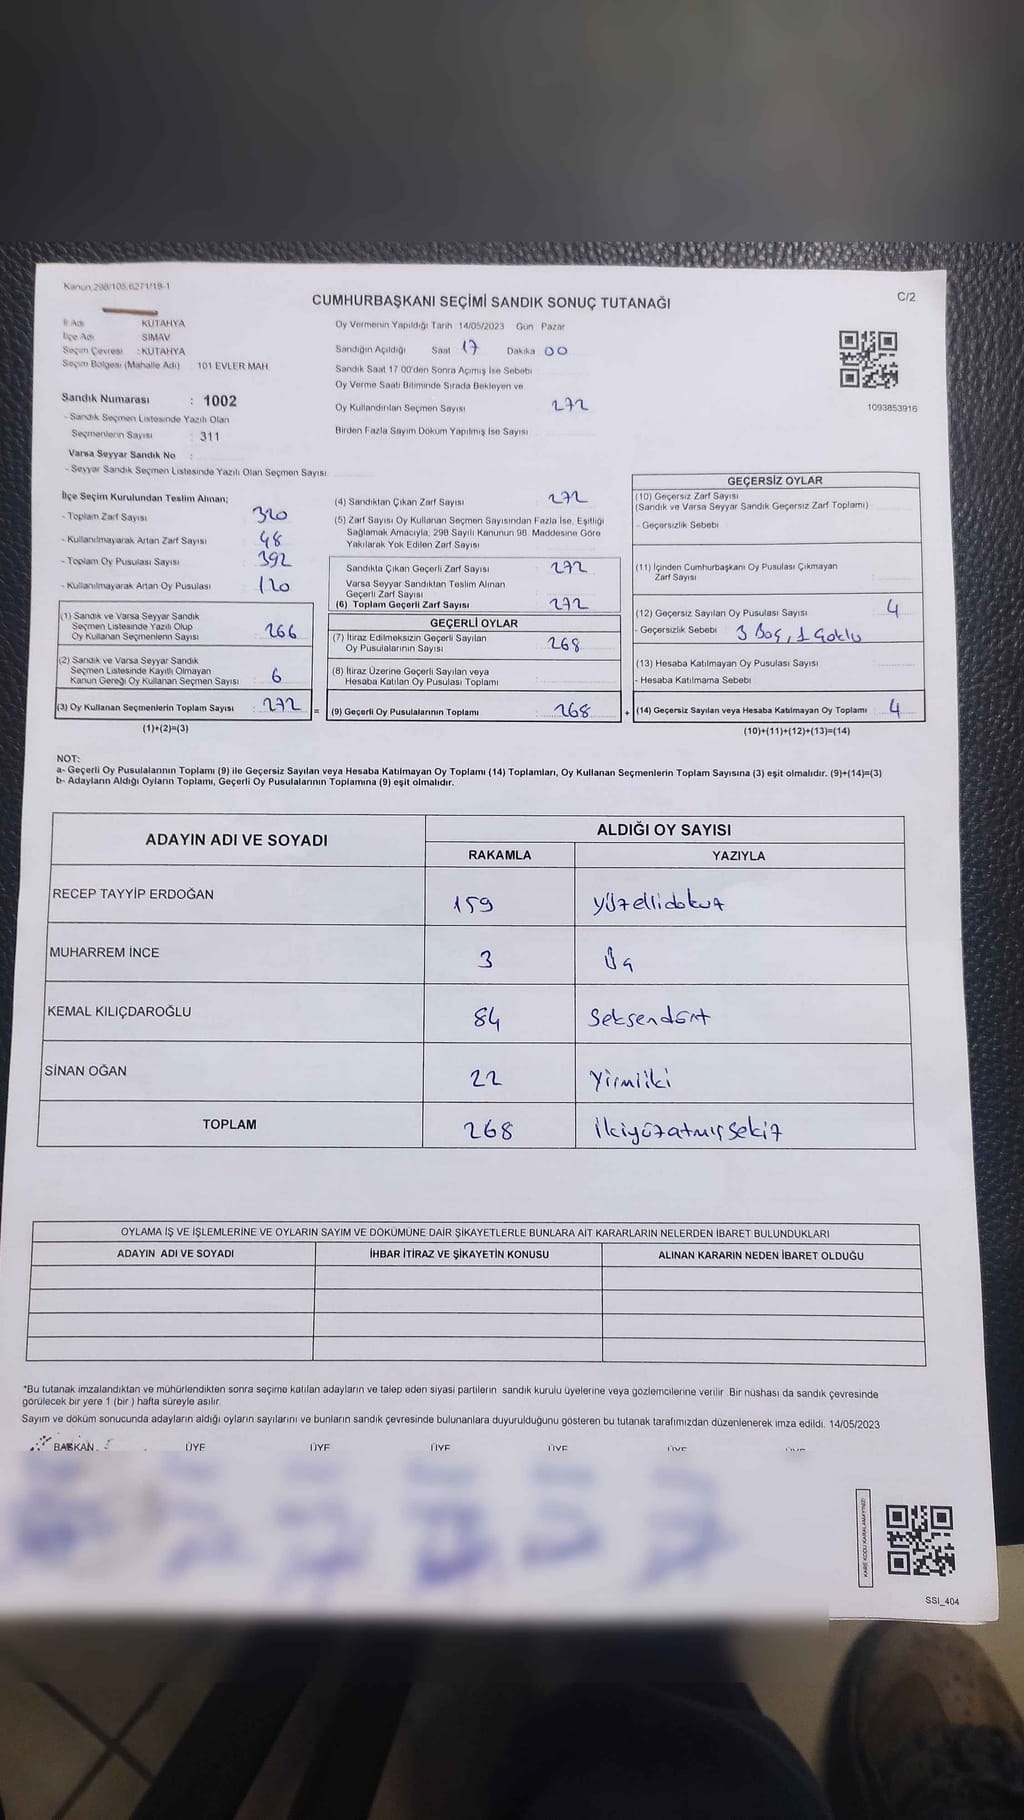 Kanun,298/105,6271/18-1
C/2
CUMHURBAŞKANI SEÇİMİ SANDIK SONUÇ TUTANAĞI
İl Adı KÜTAHYA
İlçe Adı SİMAV
Seçim Çevresi : KÜTAHYA
Seçim Bölgesi (Mahalle Adı) 101 EVLER MAH.
Sandık Numarası : 1002
- Sandık Seçmen Listesinde Yazılı Olan
Seçmenlerin Sayısı : 311
Varsa Seyyar Sandık No :
- Seyyar Sandık Seçmen Listesinde Yazılı Olan Seçmen Sayısı
Oy Vermenin Yapıldığı Tarih 14/05/2023 Gün Pazar
Sandığın Açıldığı Saat 17 Dakika 00
Sandık Saat 17.00'den Sonra Açımış İse Sebebi
Oy Verme Saati Bitiminde Sırada Bekleyen ve
Oy Kullandırılan Seçmen Sayısı 272
Birden Fazla Sayım Döküm Yapılmış İse Sayısı
1093853916
İlçe Seçim Kurulundan Teslim Alınan;
- Toplam Zarf Sayısı 320
- Kullanılmayarak Artan Zarf Sayısı 48
- Toplam Oy Pusulası Sayısı 392
- Kullanılmayarak Artan Oy Pusulası 120
(1) Sandık ve Varsa Seyyar Sandık
Seçmen Listesinde Yazılı Olup
Oy Kullanan Seçmenlerin Sayısı 266
(2) Sandık ve Varsa Seyyar Sandık
Seçmen Listesinde Kayıtlı Olmayan
Kanun Gereği Oy Kullanan Seçmen Sayısı 6
(3) Oy Kullanan Seçmenlerin Toplam Sayısı 272 =
(1)+(2)=(3)
(4) Sandıktan Çıkan Zarf Sayısı 272
(5) Zarf Sayısı Oy Kullanan Seçmen Sayısından Fazla İse, Eşitliği
Sağlamak Amacıyla, 298 Sayılı Kanunun 98. Maddesine Göre
Yakılarak Yok Edilen Zarf Sayısı
Sandıkta Çıkan Geçerli Zarf Sayısı 272
Varsa Seyyar Sandıktan Teslim Alınan
Geçerli Zarf Sayısı
(6) Toplam Geçerli Zarf Sayısı 272
GEÇERLİ OYLAR
(7) İtiraz Edilmeksizin Geçerli Sayılan
Oy Pusulalarının Sayısı 268
(8) İtiraz Üzerine Geçerli Sayılan veya
Hesaba Katılan Oy Pusulası Toplamı
(9) Geçerli Oy Pusulalarının Toplamı 268 +
GEÇERSİZ OYLAR
(10) Geçersiz Zarf Sayısı
(Sandık ve Varsa Seyyar Sandık Geçersiz Zarf Toplamı)
- Geçersizlik Sebebi
(11) İçinden Cumhurbaşkanı Oy Pusulası Çıkmayan
Zarf Sayısı
(12) Geçersiz Sayılan Oy Pusulası Sayısı 4
- Geçersizlik Sebebi 3 Boş, 1 Çoklu
(13) Hesaba Katılmayan Oy Pusulası Sayısı
- Hesaba Katılmama Sebebi
(14) Geçersiz Sayılan veya Hesaba Katılmayan Oy Toplamı 4
(10)+(11)+(12)+(13)=(14)
NOT:
a- Geçerli Oy Pusulalarının Toplamı (9) ile Geçersiz Sayılan veya Hesaba Katılmayan Oy Toplamı (14) Toplamları, Oy Kullanan Seçmenlerin Toplam Sayısına (3) eşit olmalıdır. (9)+(14)=(3)
b- Adayların Aldığı Oyların Toplamı, Geçerli Oy Pusulalarının Toplamına (9) eşit olmalıdır.
ADAYIN ADI VE SOYADI ALDIĞI OY SAYISI
RAKAMLA YAZIYLA
RECEP TAYYİP ERDOĞAN 159 yüzellidokuz
MUHARREM İNCE 3 Üç
KEMAL KILIÇDAROĞLU 84 Seksendört
SİNAN OĞAN 22 Yirmiiki
TOPLAM 268 İkiyüzatmışsekiz
OYLAMA İŞ VE İŞLEMLERİNE VE OYLARIN SAYIM VE DÖKÜMÜNE DAİR ŞİKAYETLERLE BUNLARA AİT KARARLARIN NELERDEN İBARET BULUNDUKLARI
ADAYIN ADI VE SOYADI İHBAR İTİRAZ VE ŞİKAYETİN KONUSU ALINAN KARARIN NEDEN İBARET OLDUĞU
*Bu tutanak imzalandıktan ve mühürlendikten sonra seçime katılan adayların ve talep eden siyasi partilerin sandık kurulu üyelerine veya gözlemcilerine verilir. Bir nüshası da sandık çevresinde
görülecek bir yere 1 (bir ) hafta süreyle asılır.
Sayım ve döküm sonucunda adayların aldığı oyların sayılarını ve bunların sandık çevresinde bulunanlara duyurulduğunu gösteren bu tutanak tarafımızdan düzenlenerek imza edildi. 14/05/2023
BAŞKAN ÜYE ÜYE ÜYE ÜYE ÜYE ÜYE
KARE KODU KARALAMAYINIZ!
SSI_404